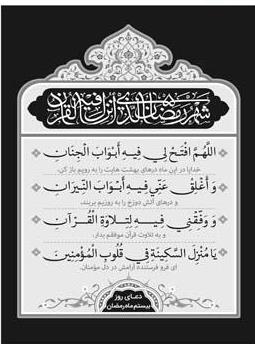 شهر رمضان الذی أنزل فیه القرآن
اللَّهُمَّ افْتَحْ لِي فِيهِ أَبْوَابَ الْجِنَانِ
خدایا در این ماه درهای بهشت هایت را به رویم باز کن.
وَ أَغْلِقْ عَنِّي فِيهِ أَبْوَابَ النِّيرَانِ
و درهای آتش دوزخ را به رویم ببند.
وَ وَفِّقْنِي فِيهِ لِتِلَاوَةِ الْقُرْآنِ
و به تلاوت قرآن موفقم بدار.
يَا مُنْزِلَ السَّكِينَةِ فِي قُلُوبِ الْمُؤْمِنِينَ
ای فرو فرستنده آرامش در دل مؤمنان.
دعای روز
بیستم ماه رمضان